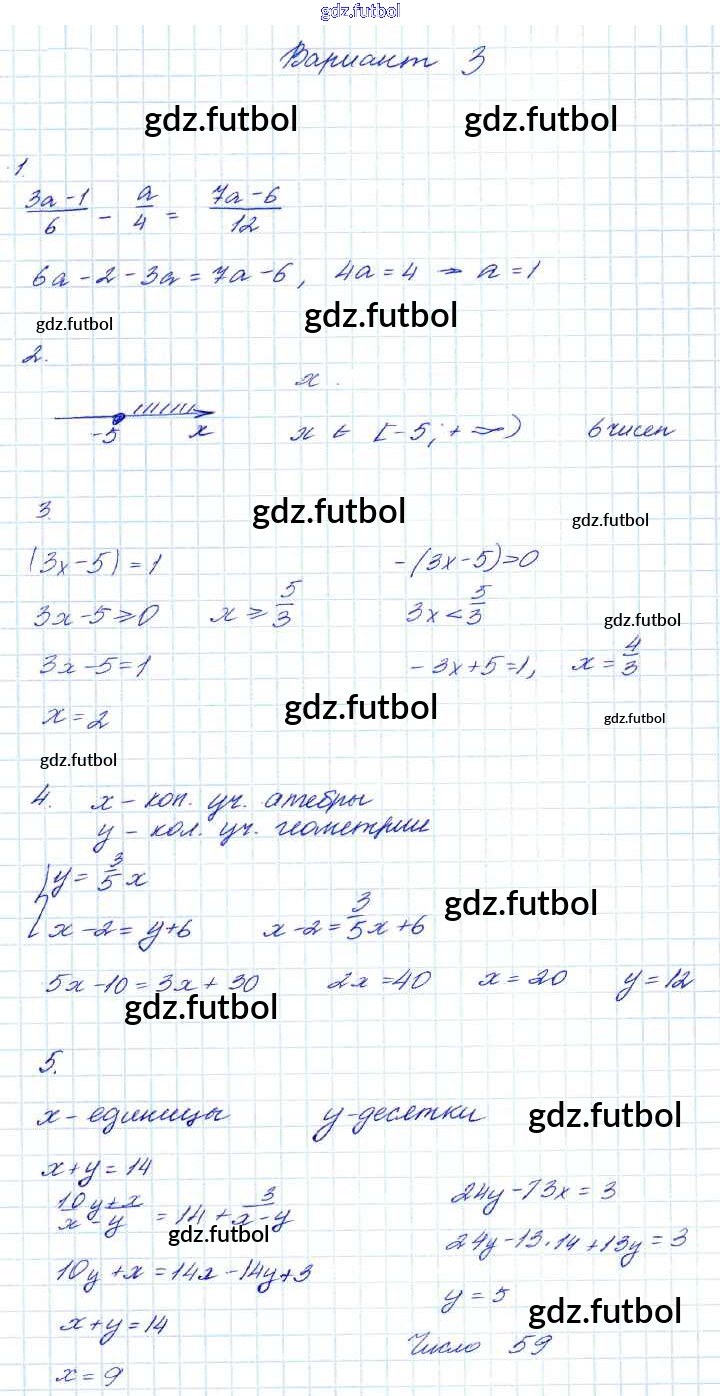 gdz.futbol
Вариант 3
gdz.futbol gdz.futbol
1.
(3a-1)/6 - a/4 = (7a-6)/12
6a-2-3a=7a-6, 4a=4 → a=1
gdz.futbol gdz.futbol
2.
x.
-5 x x ∈ [-5; +∞) 6 чисел
3. gdz.futbol gdz.futbol
|3x-5|=1 -(3x-5)>0
3x-5≥0 x ≥ 5/3 3x < 5/3 gdz.futbol
3x-5=1 -3x+5=1, x = 4/3
x=2 gdz.futbol gdz.futbol
gdz.futbol
4. x - кол. уч. алгебры
y - кол. уч. геометрии
{ y = 3/5 x
x-2 = y+6 x-2 = 3/5x+6 gdz.futbol
5x-10=3x+30 2x=40 x=20 y=12
gdz.futbol
5.
x-единицы y-десятки gdz.futbol
x+y=14
(10y+x)/(x-y) = 14 + 3/(x-y) 24y-13x=3
gdz.futbol
24y-13·14+13y=3
10y+x=14x-14y+3
y=5
x+y=14 gdz.futbol
Число 59
x=9